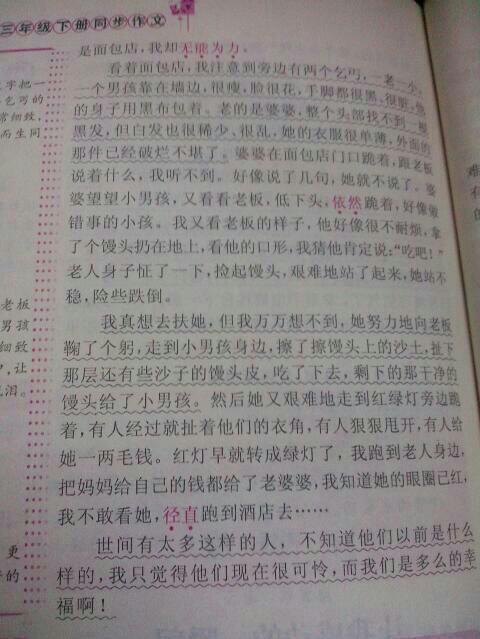 三年级下册同步作文
是面包店,我却无能为力。
看着面包店,我注意到旁边有两个乞丐,一老一少,
一个男孩靠在墙边,很瘦,脸很花,手脚都很黑,很脏,他
的身子用黑布包着。老的是婆婆,整个头部找不到一根
黑发,但白发也很稀少、很乱,她的衣服很单薄,外面的
那件已经破烂不堪了。婆婆在面包店门口跪着,跟老板
说着什么,我听不到。好像说了几句,她就不说了。婆
婆望望小男孩,又看看老板,低下头,依然跪着,好像做
错事的小孩。我又看老板的样子,他好像很不耐烦,拿
了个馒头扔在地上,看他的口形,我猜他肯定说:“吃吧!”
老人身子怔了一下,捡起馒头,艰难地站了起来,她站不
稳,险些跌倒。
我真想去扶她,但我万万想不到,她努力地向老板
鞠了个躬,走到小男孩身边,擦了擦馒头上的沙土,扯下
那层还有些沙子的馒头皮,吃了下去,剩下的那干净的
馒头给了小男孩。然后她又艰难地走到红绿灯旁边跪
着,有人经过就扯着他们的衣角,有人狠狠甩开,有人给
她一两毛钱。红灯早就转成绿灯了,我跑到老人身边,
把妈妈给自己的钱都给了老婆婆,我知道她的眼圈已红,
我不敢看她,径直跑到酒店去……
世间有太多这样的人,不知道他们以前是什么
样的,我只觉得他们现在很可怜,而我们是多么的幸
福啊!
字把一
乞丐的
常细致,
而生同
老板
男孩
细致
,让
泪。
更
的